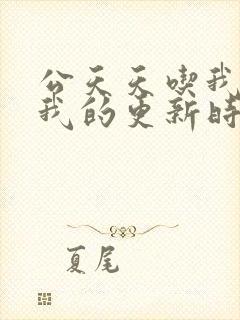 公天天喫我
我的更新时
夏尾